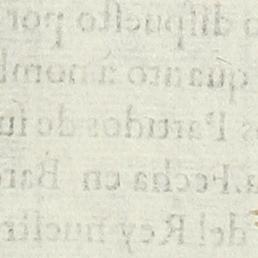 dispuesto por
quanto à nomb
Partidos de su
Fecha en Barc
del Rey nuestr